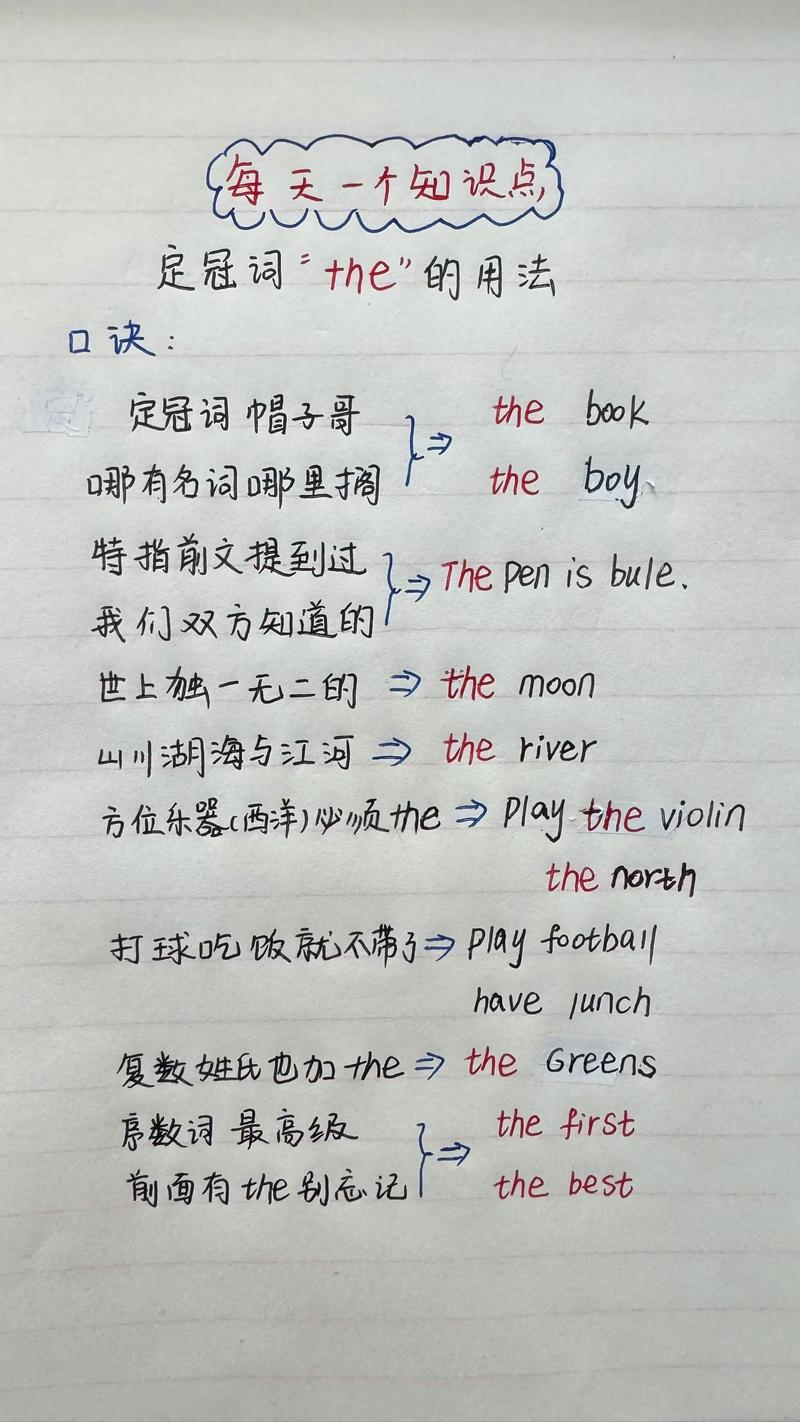 每天一个知识点
定冠词"the"的用法
口诀：
定冠词 帽子哥 ⇒ the book
哪有名词哪里搁 the boy
特指前文提到过 ⇒ The pen is bule.
我们双方知道的
世上独一无二的 ⇒ the moon
山川湖海与江河 ⇒ the river
方位乐器(西洋)必须the ⇒ play the violin
the north
打球吃饭就不带了⇒ play football
have lunch
复数姓氏也加the ⇒ the Greens
序数词 最高级 ⇒ the first
前面有the别忘记 the best